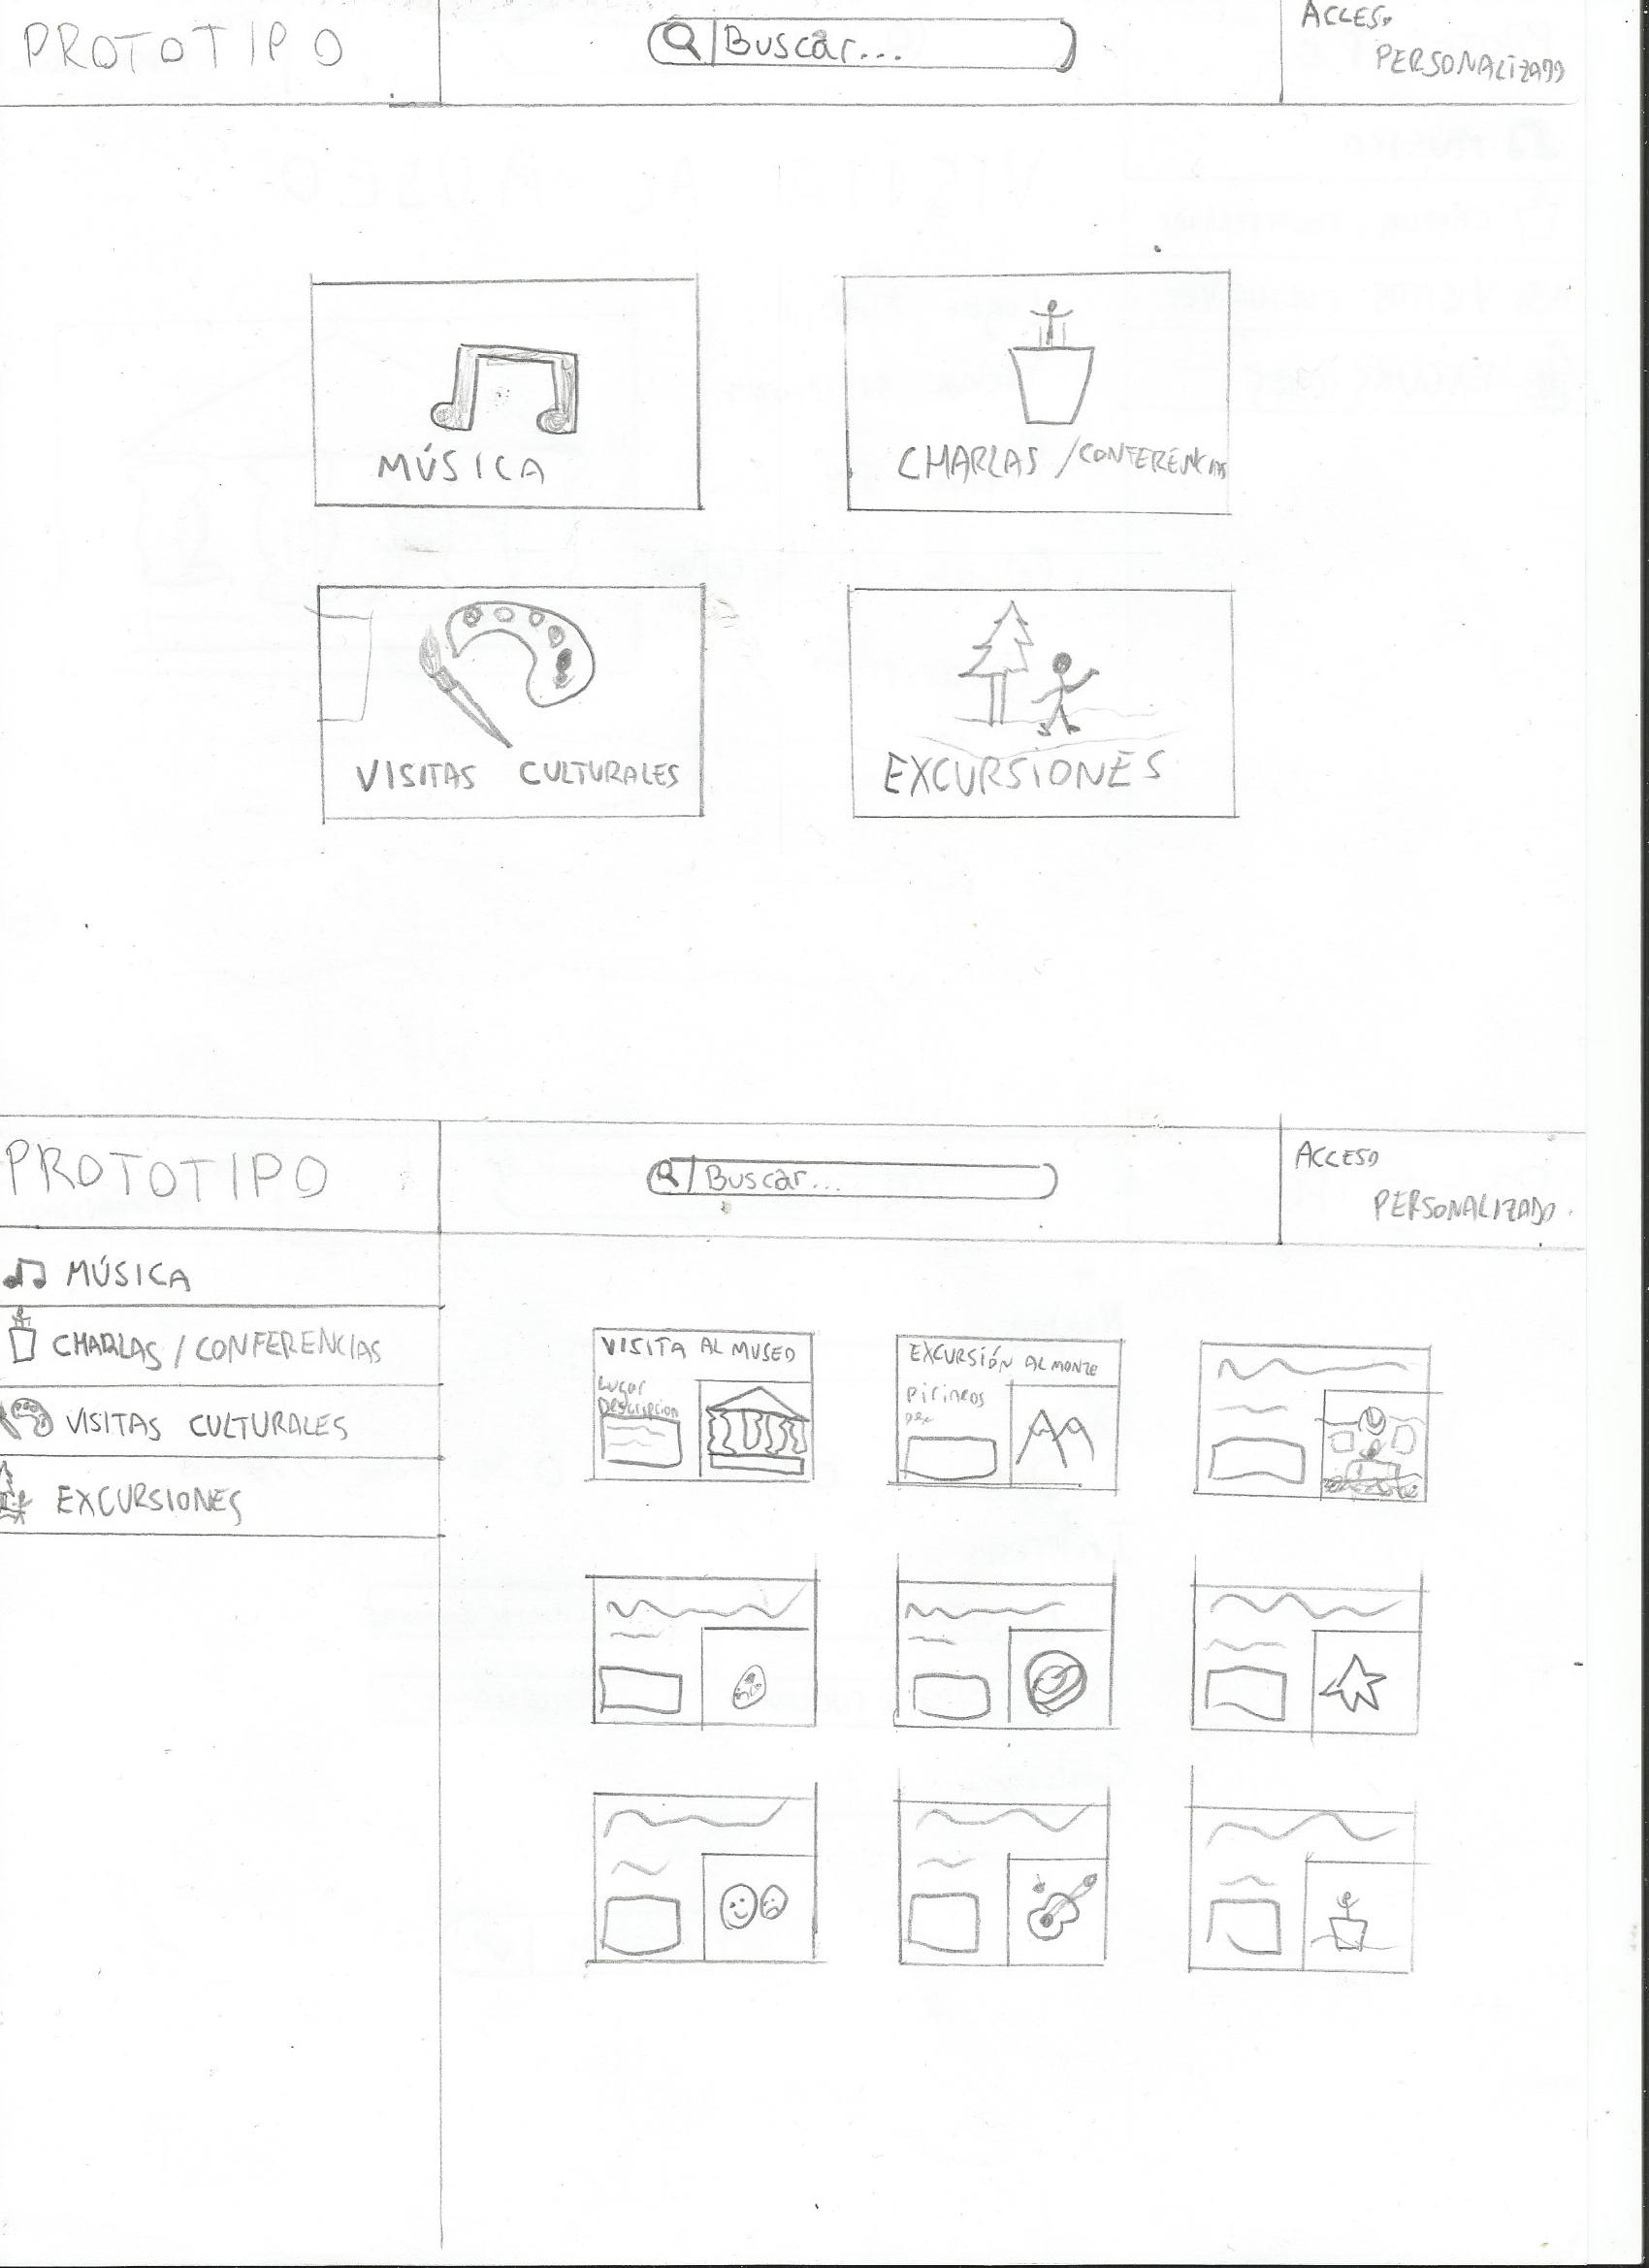 PROTOTIPO
Buscar...
ACCESO
PERSONALIZADO
MÚSICA
CHARLAS / CONFERENCIAS
VISITAS CULTURALES
EXCURSIONES
PROTOTIPO
Buscar...
ACCESO
PERSONALIZADO
MÚSICA
CHARLAS / CONFERENCIAS
VISITAS CULTURALES
EXCURSIONES
VISITA AL MUSEO
Lugar
Descripcion
EXCURSIÓN AL MONTE
Pirineos